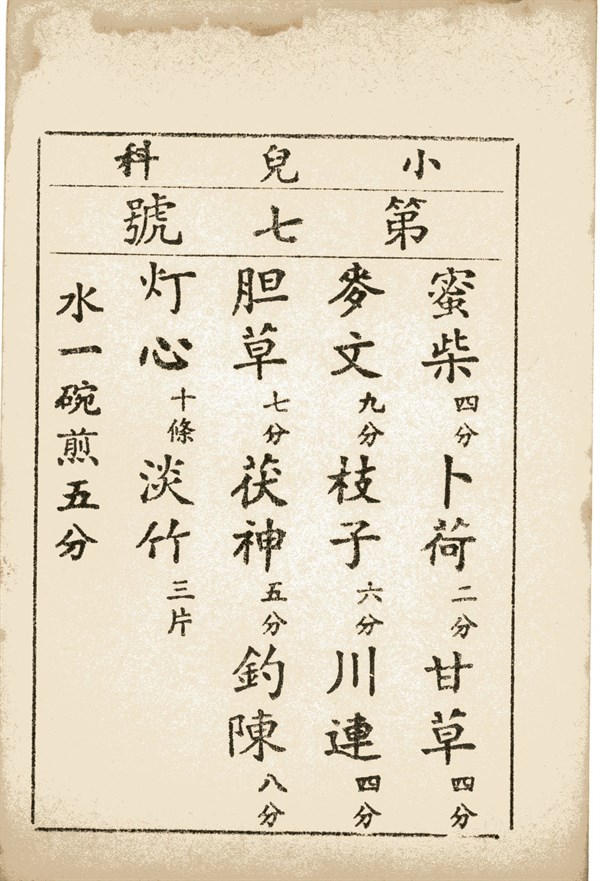 小兒科
第七號
蜜柴四分卜荷二分甘草四分
麥文九分枝子六分川連四分
胆草七分茯神五分釣陳八分
灯心十條淡竹三片
水一碗煎五分